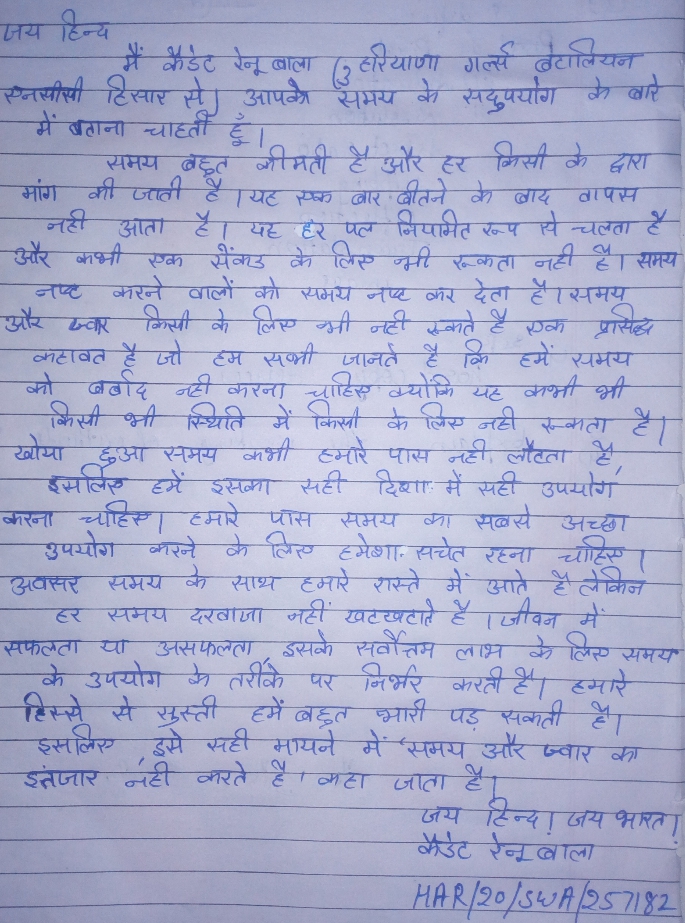 जय हिन्द
मैं कैडेट रेनू बाला (3 हरियाणा गर्ल्स बेटालियन
एनसीसी हिसार से) आपको समय के सदुपयोग के बारे
में बताना चाहती हूँ।
समय बहुत कीमती है और हर किसी के द्वारा
मांग की जाती है। यह एक बार बीतने के बाद वापस
नही आता है। यह हर पल नियमित रूप से चलता है
और कभी एक सेंकड के लिए भी रूकता नही है। समय
नष्ट करने वालों को समय नष्ट कर देता है। समय
और ज्वार किसी के लिए भी नही रूकते है एक प्रसिद्ध
कहावत है जो हम सभी जानते है कि हमें समय
को बर्बाद नही करना चाहिए क्योंकि यह कभी भी
किसी भी स्थिति में किसी के लिए नही रूकता है।
खोया हुआ समय कभी हमारे पास नही लौटता है,
इसलिए हमें इसका सही दिशा में सही उपयोग
करना चाहिए। हमारे पास समय का सबसे अच्छा
उपयोग करने के लिए हमेशा सचेत रहना चाहिए।
अवसर समय के साथ हमारे रास्ते में आते है लेकिन
हर समय दरवाजा नहीं खटखटाते है। जीवन में
सफलता या असफलता, इसके सर्वोत्तम लाभ के लिए समय
के उपयोग के तरीके पर निर्भर करती है। हमारे
हिस्से से सुस्ती हमें बहुत भारी पड़ सकती है।
इसलिए, इसे सही मायने में 'समय और ज्वार का
इंतजार नही करते है' कहा जाता है।
जय हिन्द! जय भारत!
कैडेट रेनू बाला
HAR/20/SWA/257182